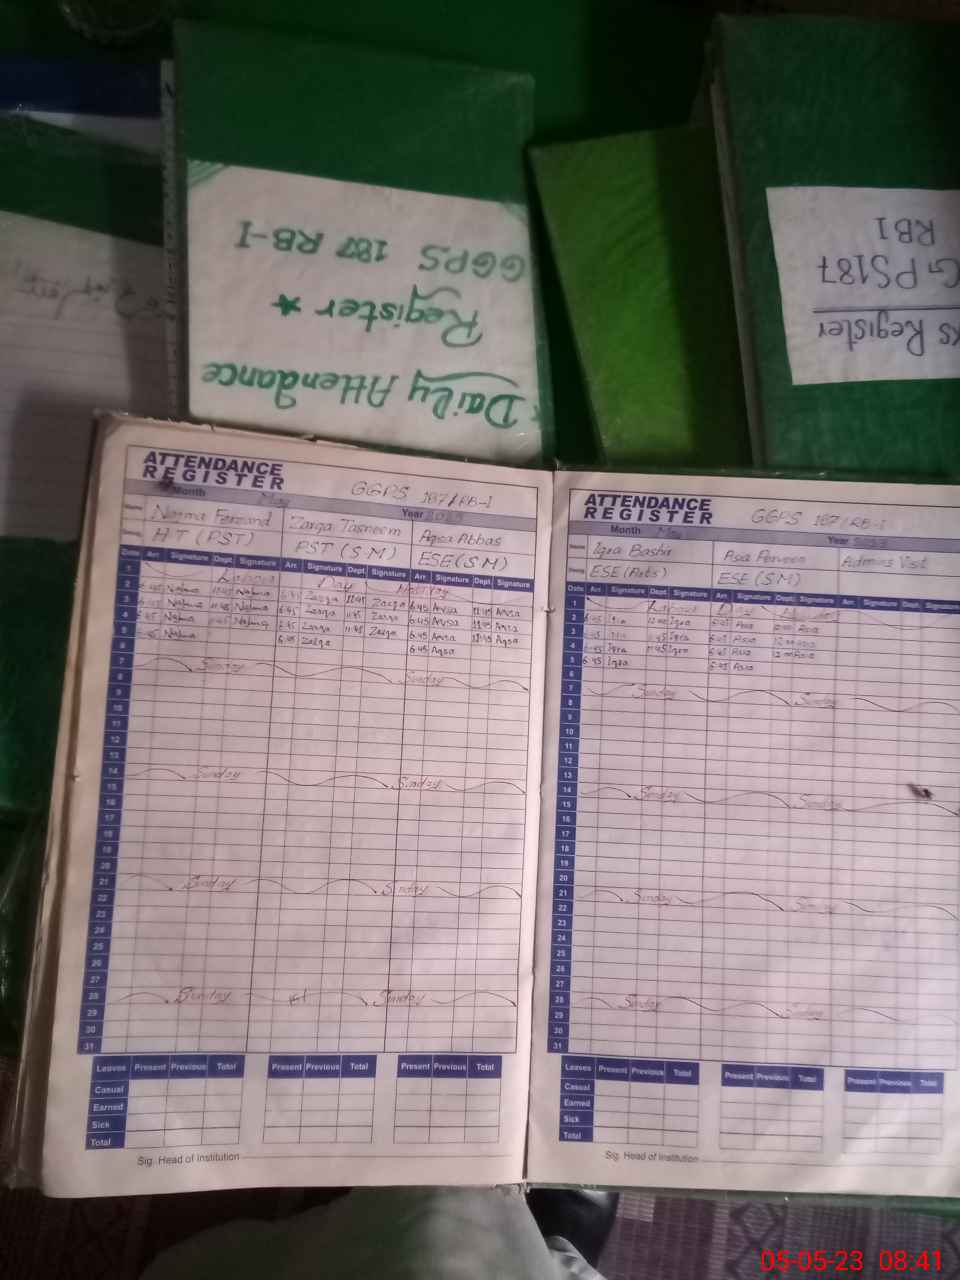 * Daily Attendance
Register *
GGPS 187 RB-I
Register
GPS187
RB1
ATTENDANCE
REGISTER
GGPS 187/RB-I
Month May Year 2023
Name Zarqa Tasneem Aqsa Abbas
HT (PST) PST (S.M) ESE (S.M)
Date Arr. Signature Dept. Signature Arr. Signature Dept. Signature Arr. Signature Dept. Signature
1 Labour Day Holiday
2 6:45 Najma 11:45 Najma 6:45 Zarqa 11:45 Zarqa 6:45 Aqsa 11:45 Aqsa
3 6:45 Najma 11:45 Najma 6:45 Zarqa 11:45 Zarqa 6:45 Aqsa 11:45 Aqsa
4 6:45 Najma 11:45 Najma 6:45 Zarqa 11:45 Zarqa 6:45 Aqsa 11:45 Aqsa
5 6:45 Najma 6:45 Zarqa 6:45 Aqsa
6
7 Sunday Sunday
8
9
10
11
12
13
14 Sunday Sunday
15
16
17
18
19
20
21 Sunday Sunday
22
23
24
25
26
27
28 Sunday Sunday
29
30
31
Leaves Present Previous Total Present Previous Total Present Previous Total
Casual
Earned
Sick
Total
Sig. Head of Institution
ATTENDANCE
REGISTER
GGPS 187/RB-I
Month May Year 2023
Name Iqra Bashir Asia Perveen Admins Visit
ESE (Arts) ESE (S.M)
Date Arr. Signature Dept. Signature Arr. Signature Dept. Signature Arr. Signature Dept. Signature
1 Labour Day
2 6:45 Iqra 12:00 Iqra 6:45 Asia 12:00 Asia
3 6:45 Iqra 11:45 Iqra 6:45 Asia 12:00 Asia
4 6:45 Iqra 11:45 Iqra 6:45 Asia 12:00 Asia
5 6:45 Iqra 6:45 Asia
6
7 Sunday Sunday
8
9
10
11
12
13
14 Sunday Sunday
15
16
17
18
19
20
21 Sunday Sunday
22
23
24
25
26
27
28 Sunday Sunday
29
30
31
Leaves Present Previous Total Present Previous Total Present Previous Total
Casual
Earned
Sick
Total
Sig. Head of Institution
05-05-23 08:41